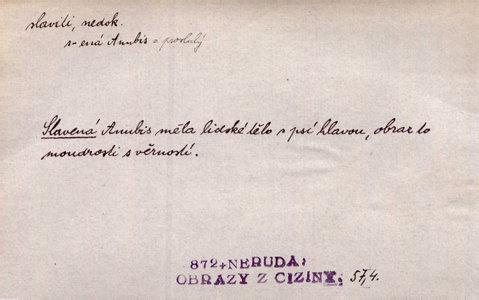 slaviti, nedok.
s-ená Anubis = proslulý
Slavená Anubis měla lidské tělo s psí hlavou, obraz to
moudrosti s věrností.
872+NERUDA:
OBRAZY Z CIZINY, 57,4.